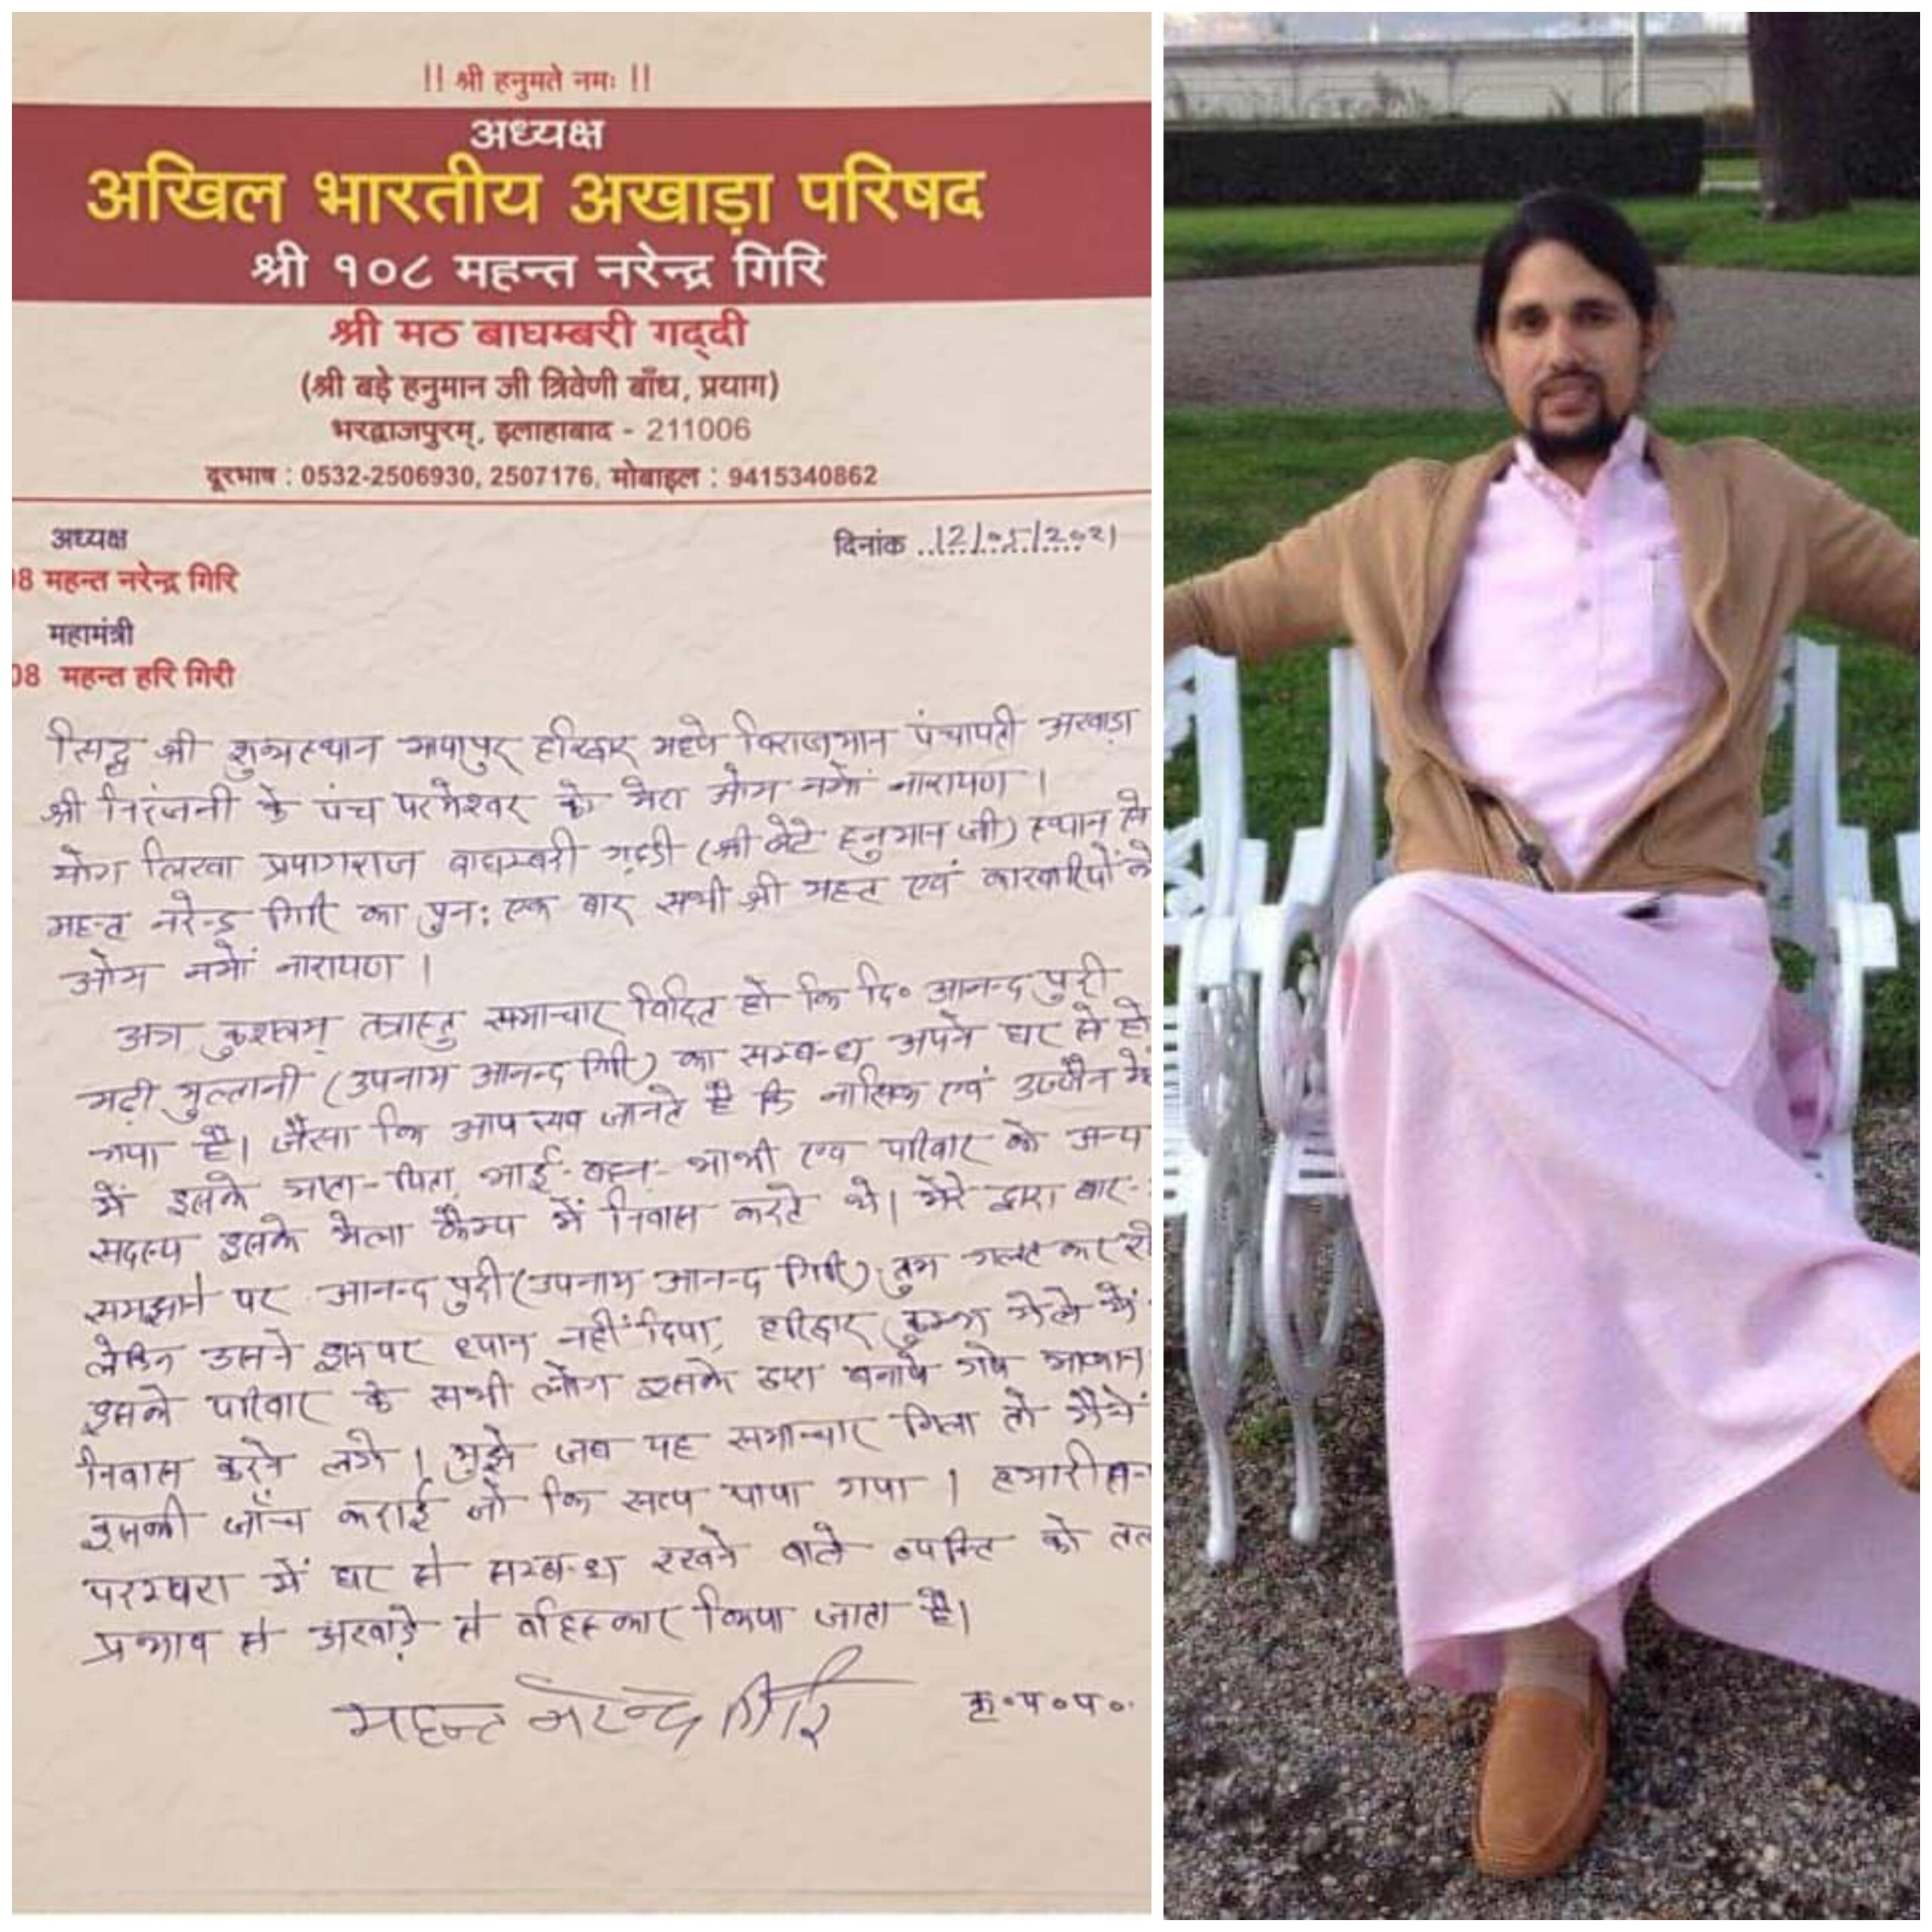 !! श्री हनुमते नमः !!
अध्यक्ष
अखिल भारतीय अखाड़ा परिषद
श्री १०८ महन्त नरेन्द्र गिरि
श्री मठ बाघम्बरी गद्दी
(श्री बड़े हनुमान जी त्रिवेणी बाँध, प्रयाग)
भरद्वाजपुरम्, इलाहाबाद - 211006
दूरभाष : 0532-2506930, 2507176, मोबाइल : 9415340862
अध्यक्ष
08 महन्त नरेन्द्र गिरि
महामंत्री
08 महन्त हरि गिरी
दिनांक 12/05/2021
सिद्ध श्री शुभस्थान मायापुर हरिद्वार मध्ये विराजमान पंचायती अखाड़ा
श्री निरंजनी के पंच परमेश्वर को मेरा ओम नमों नारायण ।
योग लिखा प्रयागराज बाघम्बरी गद्दी (श्री लेटे हनुमान जी) स्थान से
महन्त नरेन्द्र गिरि का पुनः एक बार सभी श्री महन्त एवं कारबारियों को
ओम नमों नारायण ।
अत्र कुशलम् तत्रास्तु समाचार विदित हो कि दि० आनन्द पुरी
मढ़ी मुल्तानी (उपनाम आनन्द गिरि) का सम्बन्ध अपने घर से हो
गया है। जैसा कि आप सब जानते है कि नासिक एवं उज्जैन मे
में इसके माता-पिता, भाई-बहन-भाभी एवं परिवार के अन्य
सदस्य इसके मेला कैम्प में निवास करते थे। मेरे द्वारा बार-
समझाने पर आनन्द पुरी (उपनाम आनन्द गिरि) तुम गलत कर रहे
लेकिन उसने इसपर ध्यान नहीं दिया, हरिद्वार कुम्भ मेले में
इसके परिवार के सभी लोग इसके द्वारा बनाये गये मकान
निवास करने लगे । मुझे जब यह समाचार मिला तो मैंने
इसकी जाँच कराई जो कि सत्य पाया गया । हमारी
परम्परा में घर से सम्बन्ध रखने वाले व्यक्ति को
प्रभाव से अखाड़े से वहिस्कार किया जाता है।
महन्त नरेन्द्र गिरि
कृ०प०प०